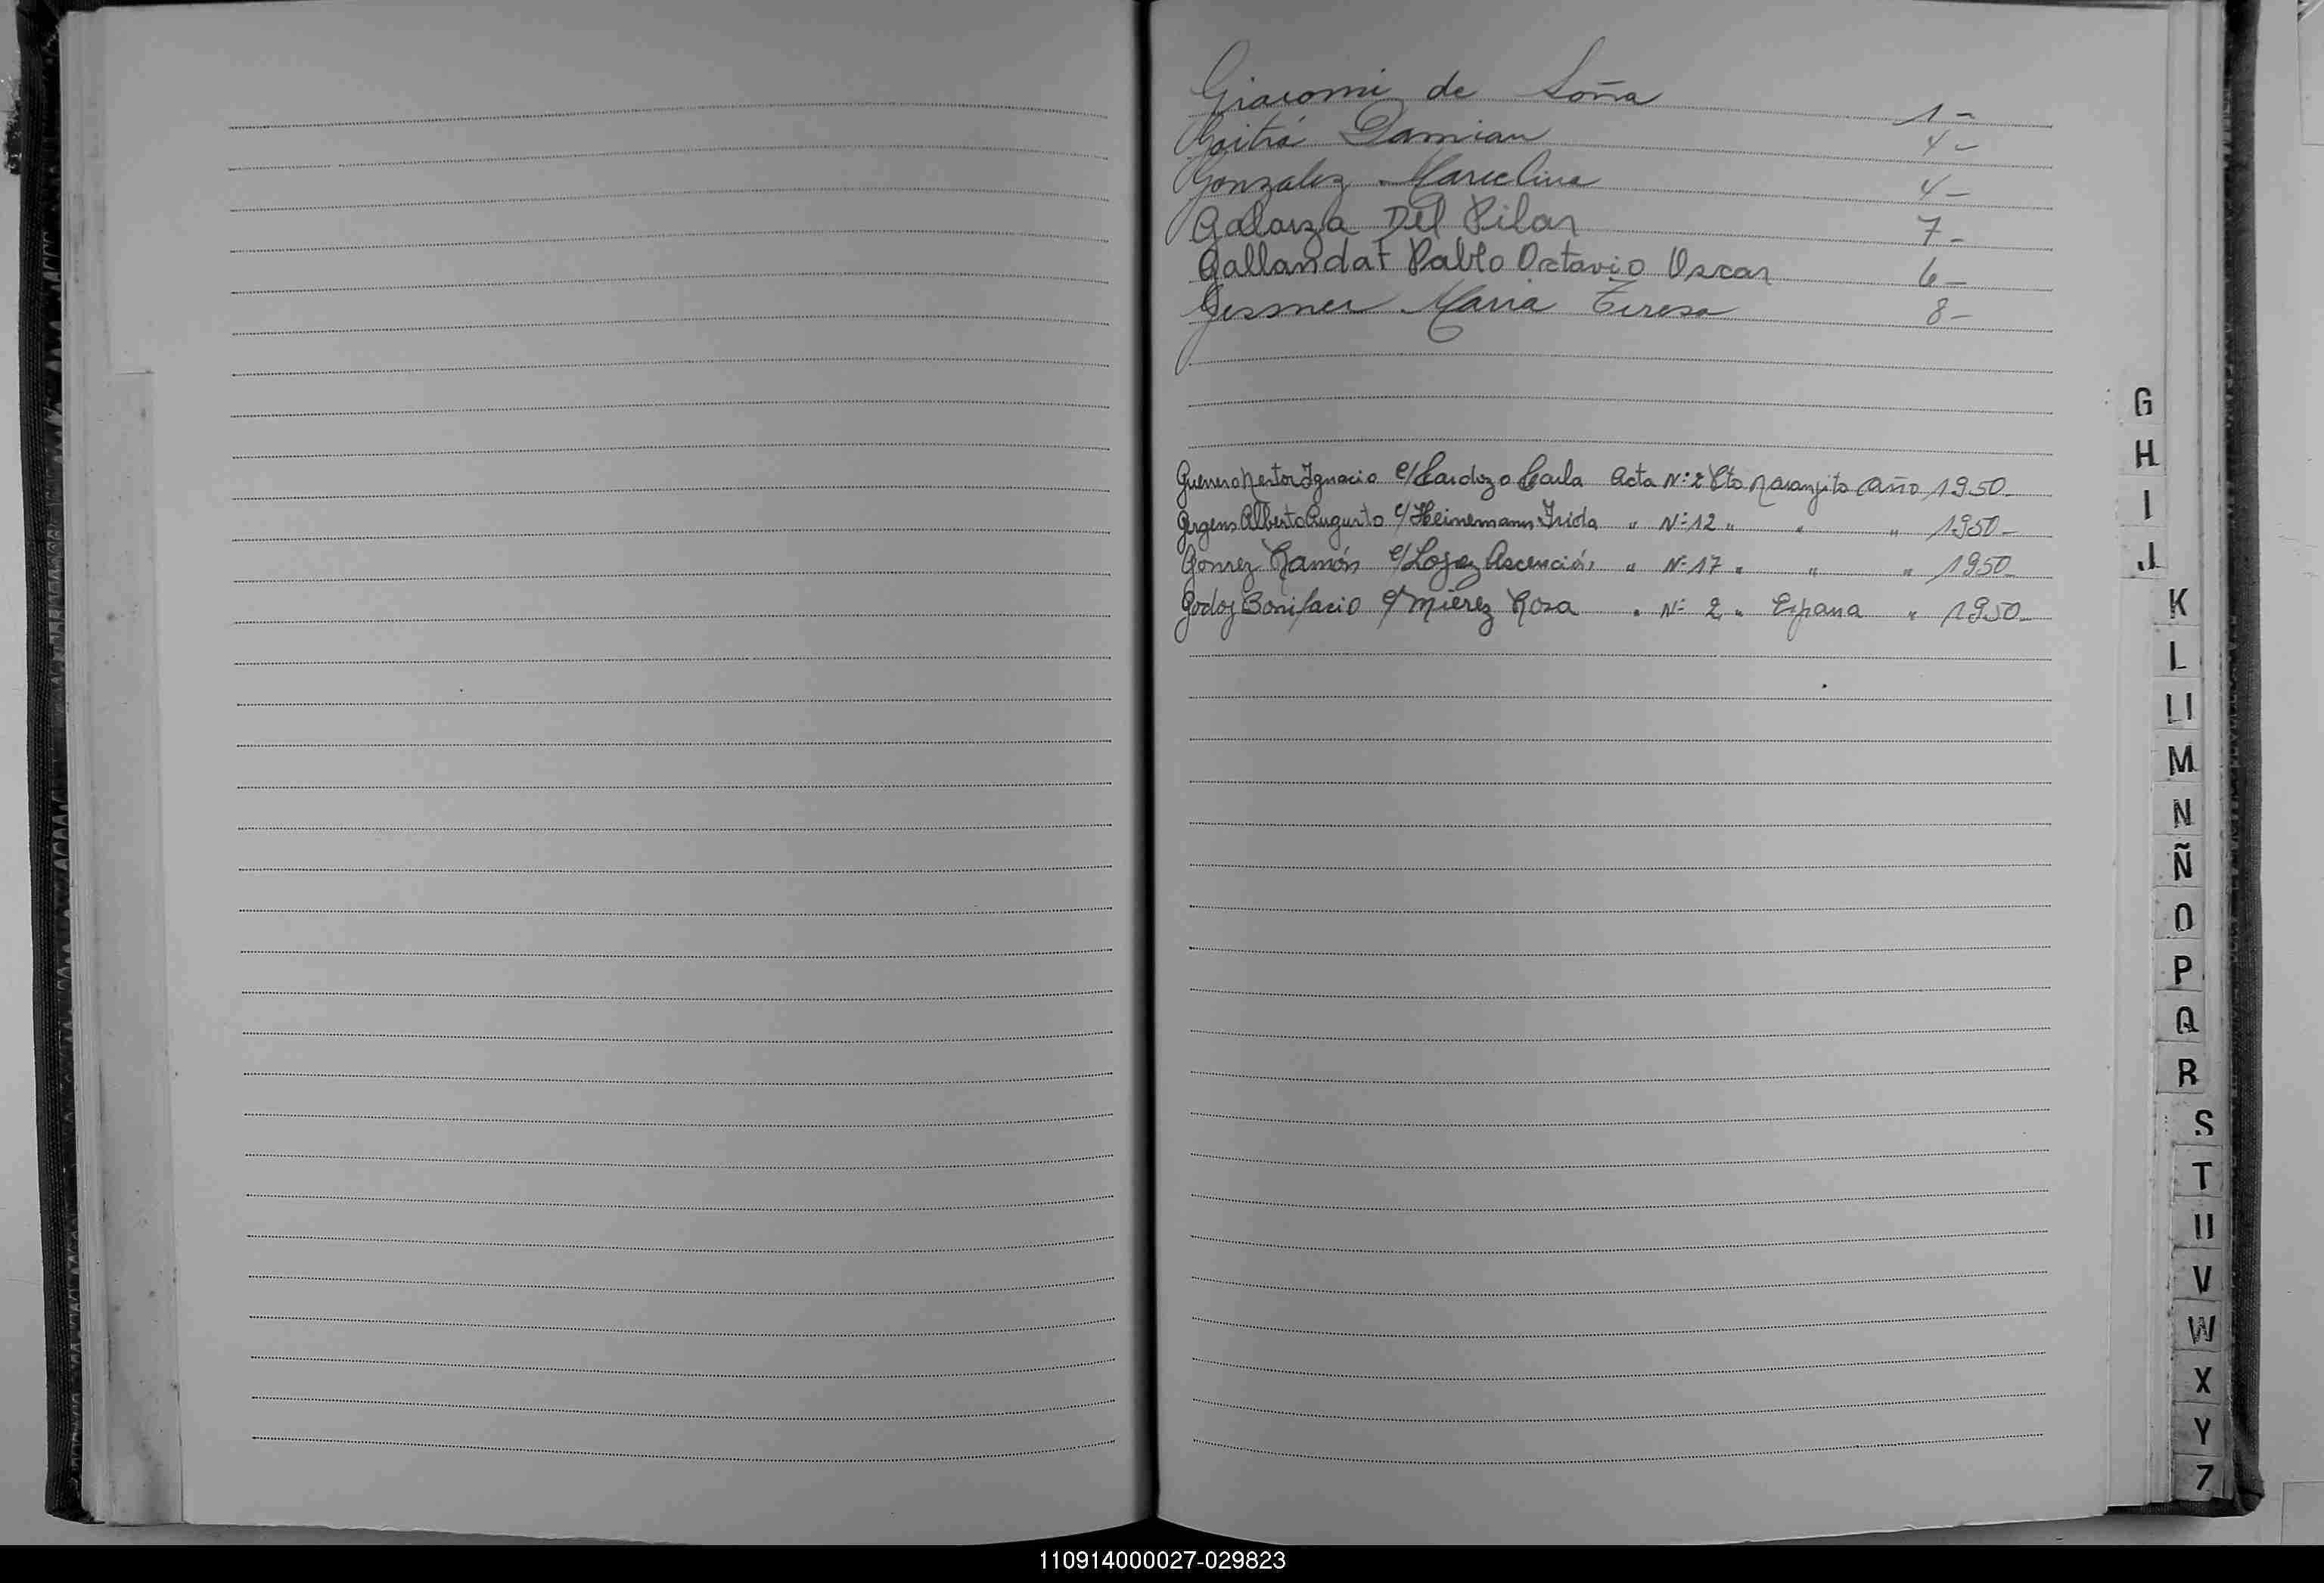 Giacomi de Soña 1 -
Goitrá Damian 4 -
Gonzalez Marcelina 4 -
Galarza Del Pilar 7 -
Gallandat Pablo Octavio Oscar 6 -
Gessner Maria Teresa 8 -
Guerrero Nestor Ignacio c/ Cardozo Carla Acta Nº 2 Pto Naranjito Año 1950-
Gergens Alberto Augusto c/ Heinemann Frida " Nº 12 " " " 1950-
Gomez Ramón c/ Lopez Ascención " Nº 17 " " " 1950-
Godoy Bonifacio c/ Mierez Rosa " Nº 2 " España " 1950-
G
H
I
J
K
L
Ll
M
N
Ñ
O
P
Q
R
S
T
U
V
W
X
Y
Z
110914000027-029823